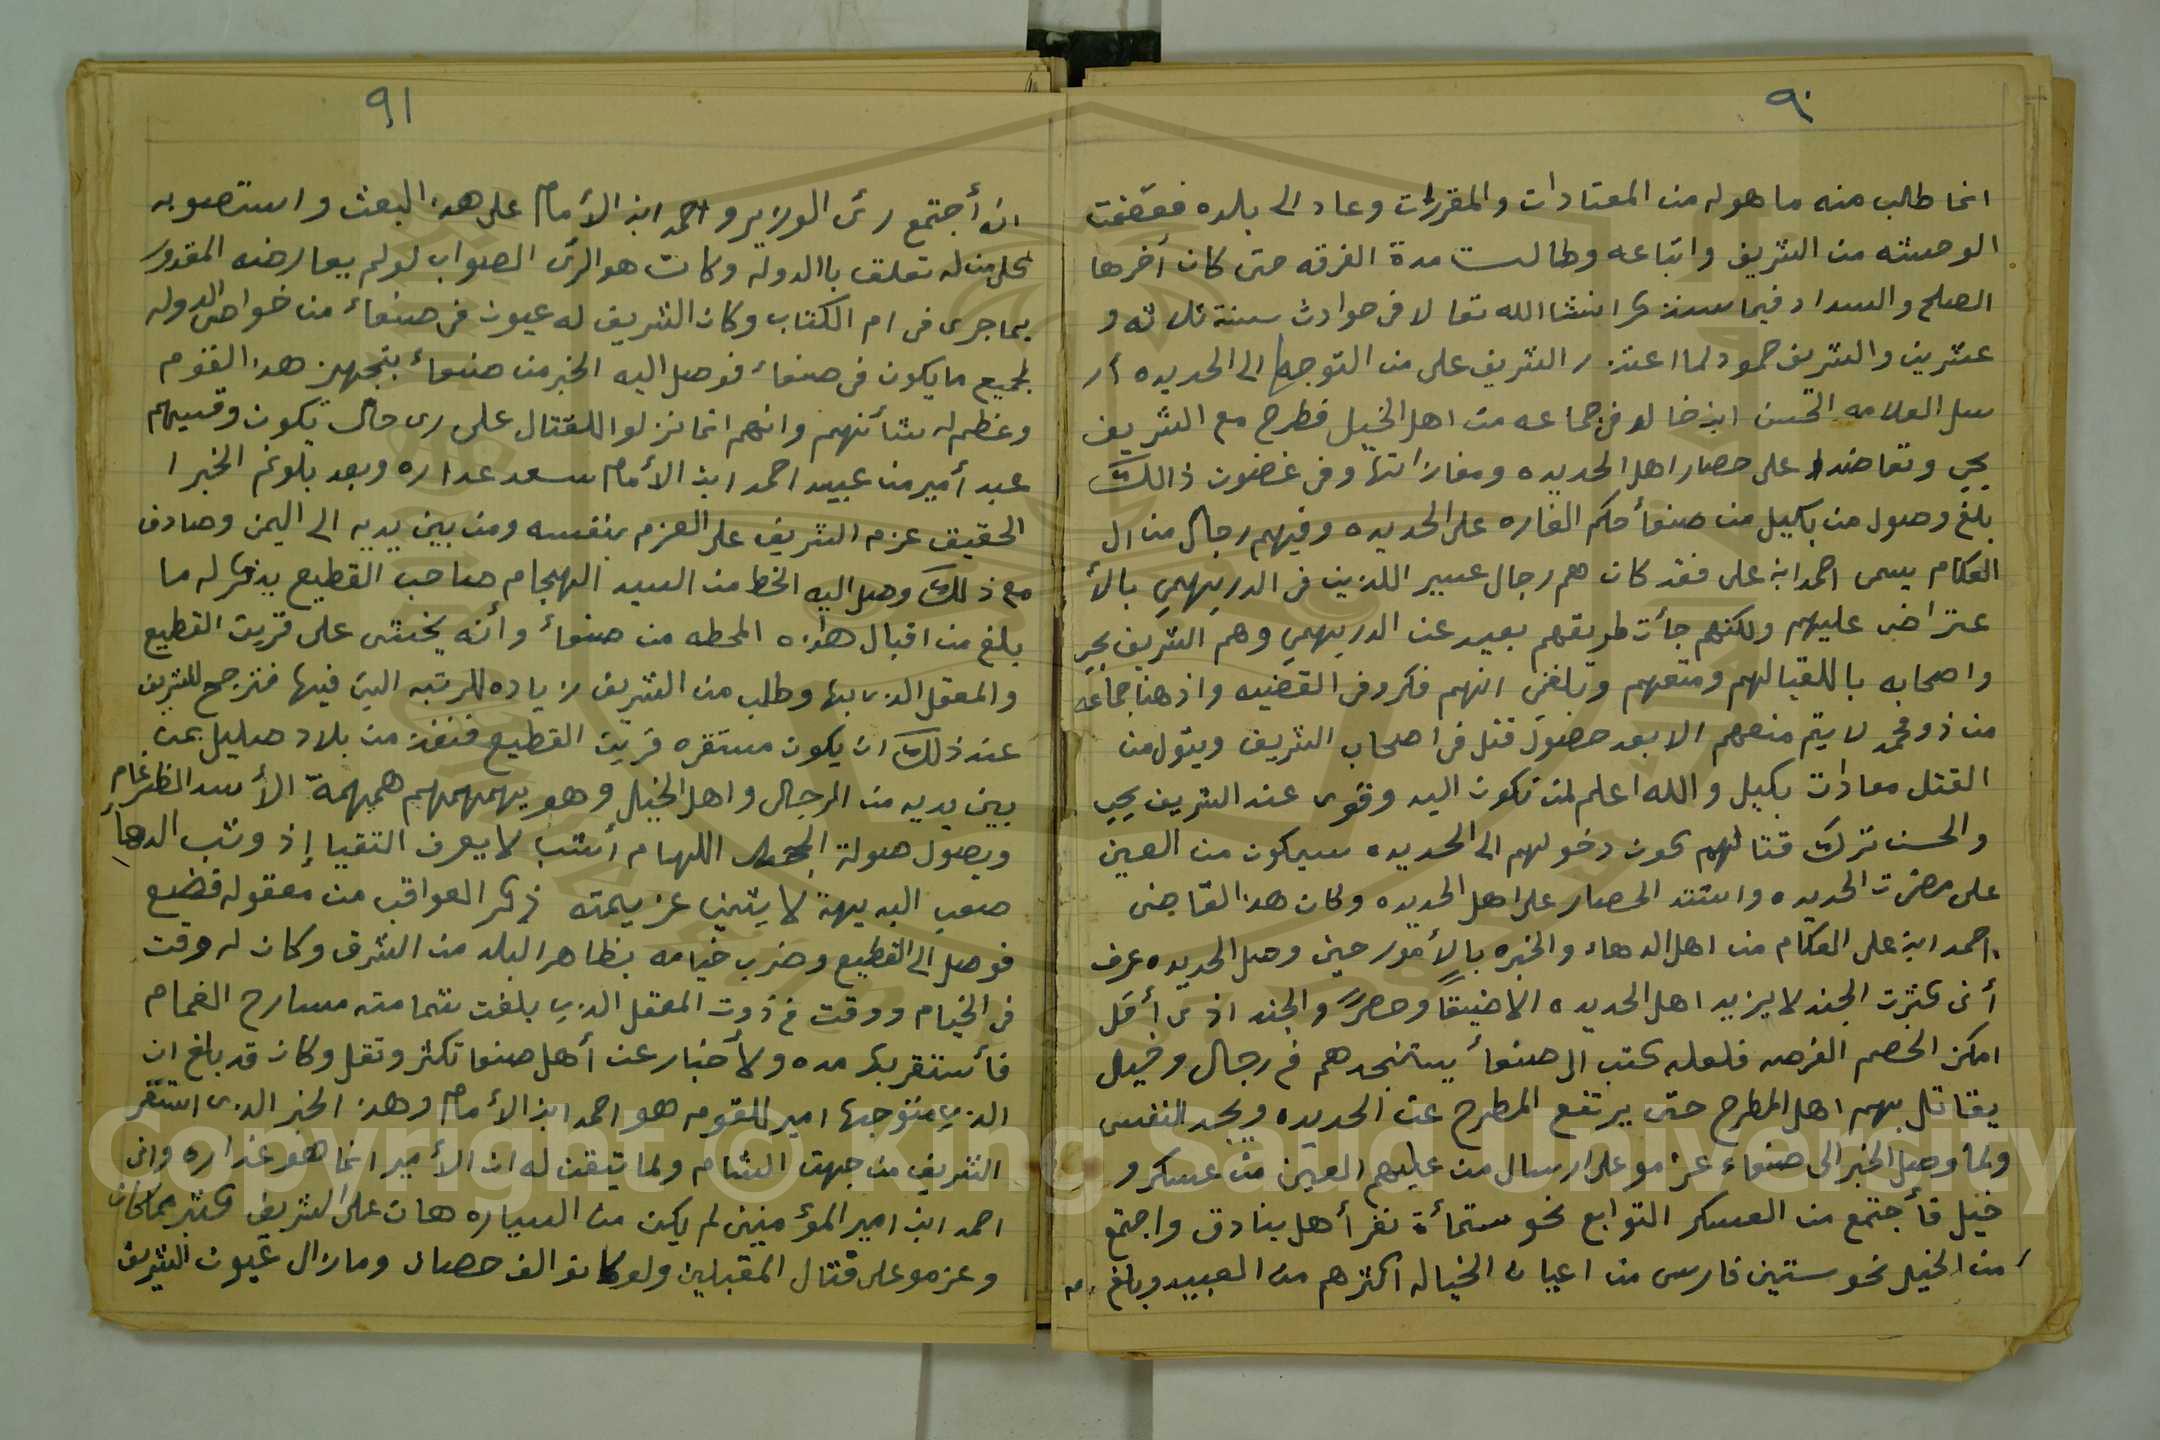 ٩٠
انما طالب منه ما هوله من المعتادات والمقررات وعاد الى بلده فعضمت
الوحشته من الشريف واتباعه وطالت مدة الفرقه حتى كان أخرها
الصلح والسداد فيما سنذكر انشا الله تعالا فى حوادث سنة ثلاثه و
عشرين والشريف حمود لما اعتذر الشريف على من التوجه الى الحديده أر
سل العلامه الحسن ابن خالد فى جماعه من اهل الخيل فطرح مع الشريف
يحي وتعاضدا على حصار اهل الحديده ومغازاتها وفى غضون ذالك
بلغ وصول من بكيل من صنعأ حكم الغاره على الحديده وفيهم رجال من ال
العكام يسمى احمد ابن على فقد كان هم رجال عسير اللذين فى الدريهمي بالأ
عتراض عليهم ولكنهم جأت طريقهم بعيد عن الدريهمي وهم الشريف يحي
واصحابه باللقيا لهم ومنعهم وبلغنى انهم فكرو فى القضيه واذ هنا جماعه
من ذو محمد لا يتم منعهم الا بعد حصول قتل فى اصحاب الشريف ويتول من
القتل معادات بكيل والله اعلم لمن تكون اليد وقوى عند الشريف يحيي
والحسن ترك قتالهم كون دخولهم الى الحديده سيكون من العين
على مضرت الحديده واشتد الحصار على اهل الحديده وكان هذ القاضى
احمد ابن على العكام من اهل الدهاء والخبره بالأمور حين وصل الحديده عرف
أنى كثرت الجند لا يزيد اهل الحديده الا ضيقاً وحصرً والجند اذى أقل
امكن الخصم الفرصه فلعله كتب الى صنعأ يستنجدهم فى رجال وخيل
يقاتل بهم اهل المطرح حتى يرتفع المطرح عن الحديده ويجد النفس
ولما وصل الخبر الى صنعاء عزمو على ارسال من عليهم العين من عسكر و
خيل فأجتمع من العسكر التوابع نحو ستمأة نفر أهل بنادق واجتمع
من الخيل نحو ستين فارس من اعيان الخياله اكثرهم من العبيد وبلغ
٩١
ان أجتمع رئى الوزير واحمد ابن الأمام على هذ البعث واستصوبه
كل من له تعلق باالدوله وكانت هو الرئى الصواب لو لم يعارضه المقدور
بما جرى فى ام الكتاب وكان الشريف له عيون فى صنعاء من خواص الدوله
لجميع ما يكون فى صنعاء فوصل اليه الخبر من صنعاء بتجهيز هذ القوم
وعظم له شأنهم وانهم انما نزلوا للقتال على رى حال يكون وفيهم
عبد أمير من عبيد احمد ابن الأمام سعد عداره وبعد بلوغم الخبر ا
الحقيق عزم الشريف على العزم بنفسه ومن بين يديه الى اليمن وصادف
مع ذلك وصل اليه الخط من السيد الهجام صاحب القطيع يذكر له ما
بلغ من اقبال هاذه المحطه من صنعأ وأنه يخشى على قريت القطيع
والمعقل الذى بها وطلب من الشريف زياده للرتبه التى فيها فترجح للشريف
عند ذلك ان يكون مستقره قريت القطيع فنفذ من بلاد صليل بمن
بين يديه من الرجال واهل الخيل وهو يهمهمهم همهمة الأسد الظرغام
ويصول صولة اللهام أشب لا يعرف التقيا إذ وثب الدهأ
صعب البديهة لا يثنى عزيمته ذكر العواقب من معقوله قضيع
فوصل الى القطيع وضرب خيامه بظاهر البلد من الشرق وكان له وقت
فى الخيام ووقت فى ذروت المعقل الذى بلغت شمامته مسارح الغمام
فأستقر بها مده والأخبار عن أهل صنعا تكثر وتقل وكان قد بلغ ان
الذي متوجها امير للقوم هو احمد ابن الأمام وهذ الخبر الذى استقر
الشريف من جهت الشام ولما تيقن له ان الأمير انما هو عذاره وانى
احمد ابن امير المؤمنين لم يكن من السياره هان على الشريف كثير مما كان
وعزمو على قتال المقبلين ولو كانو الف حصاء وما زال عيون الشريف